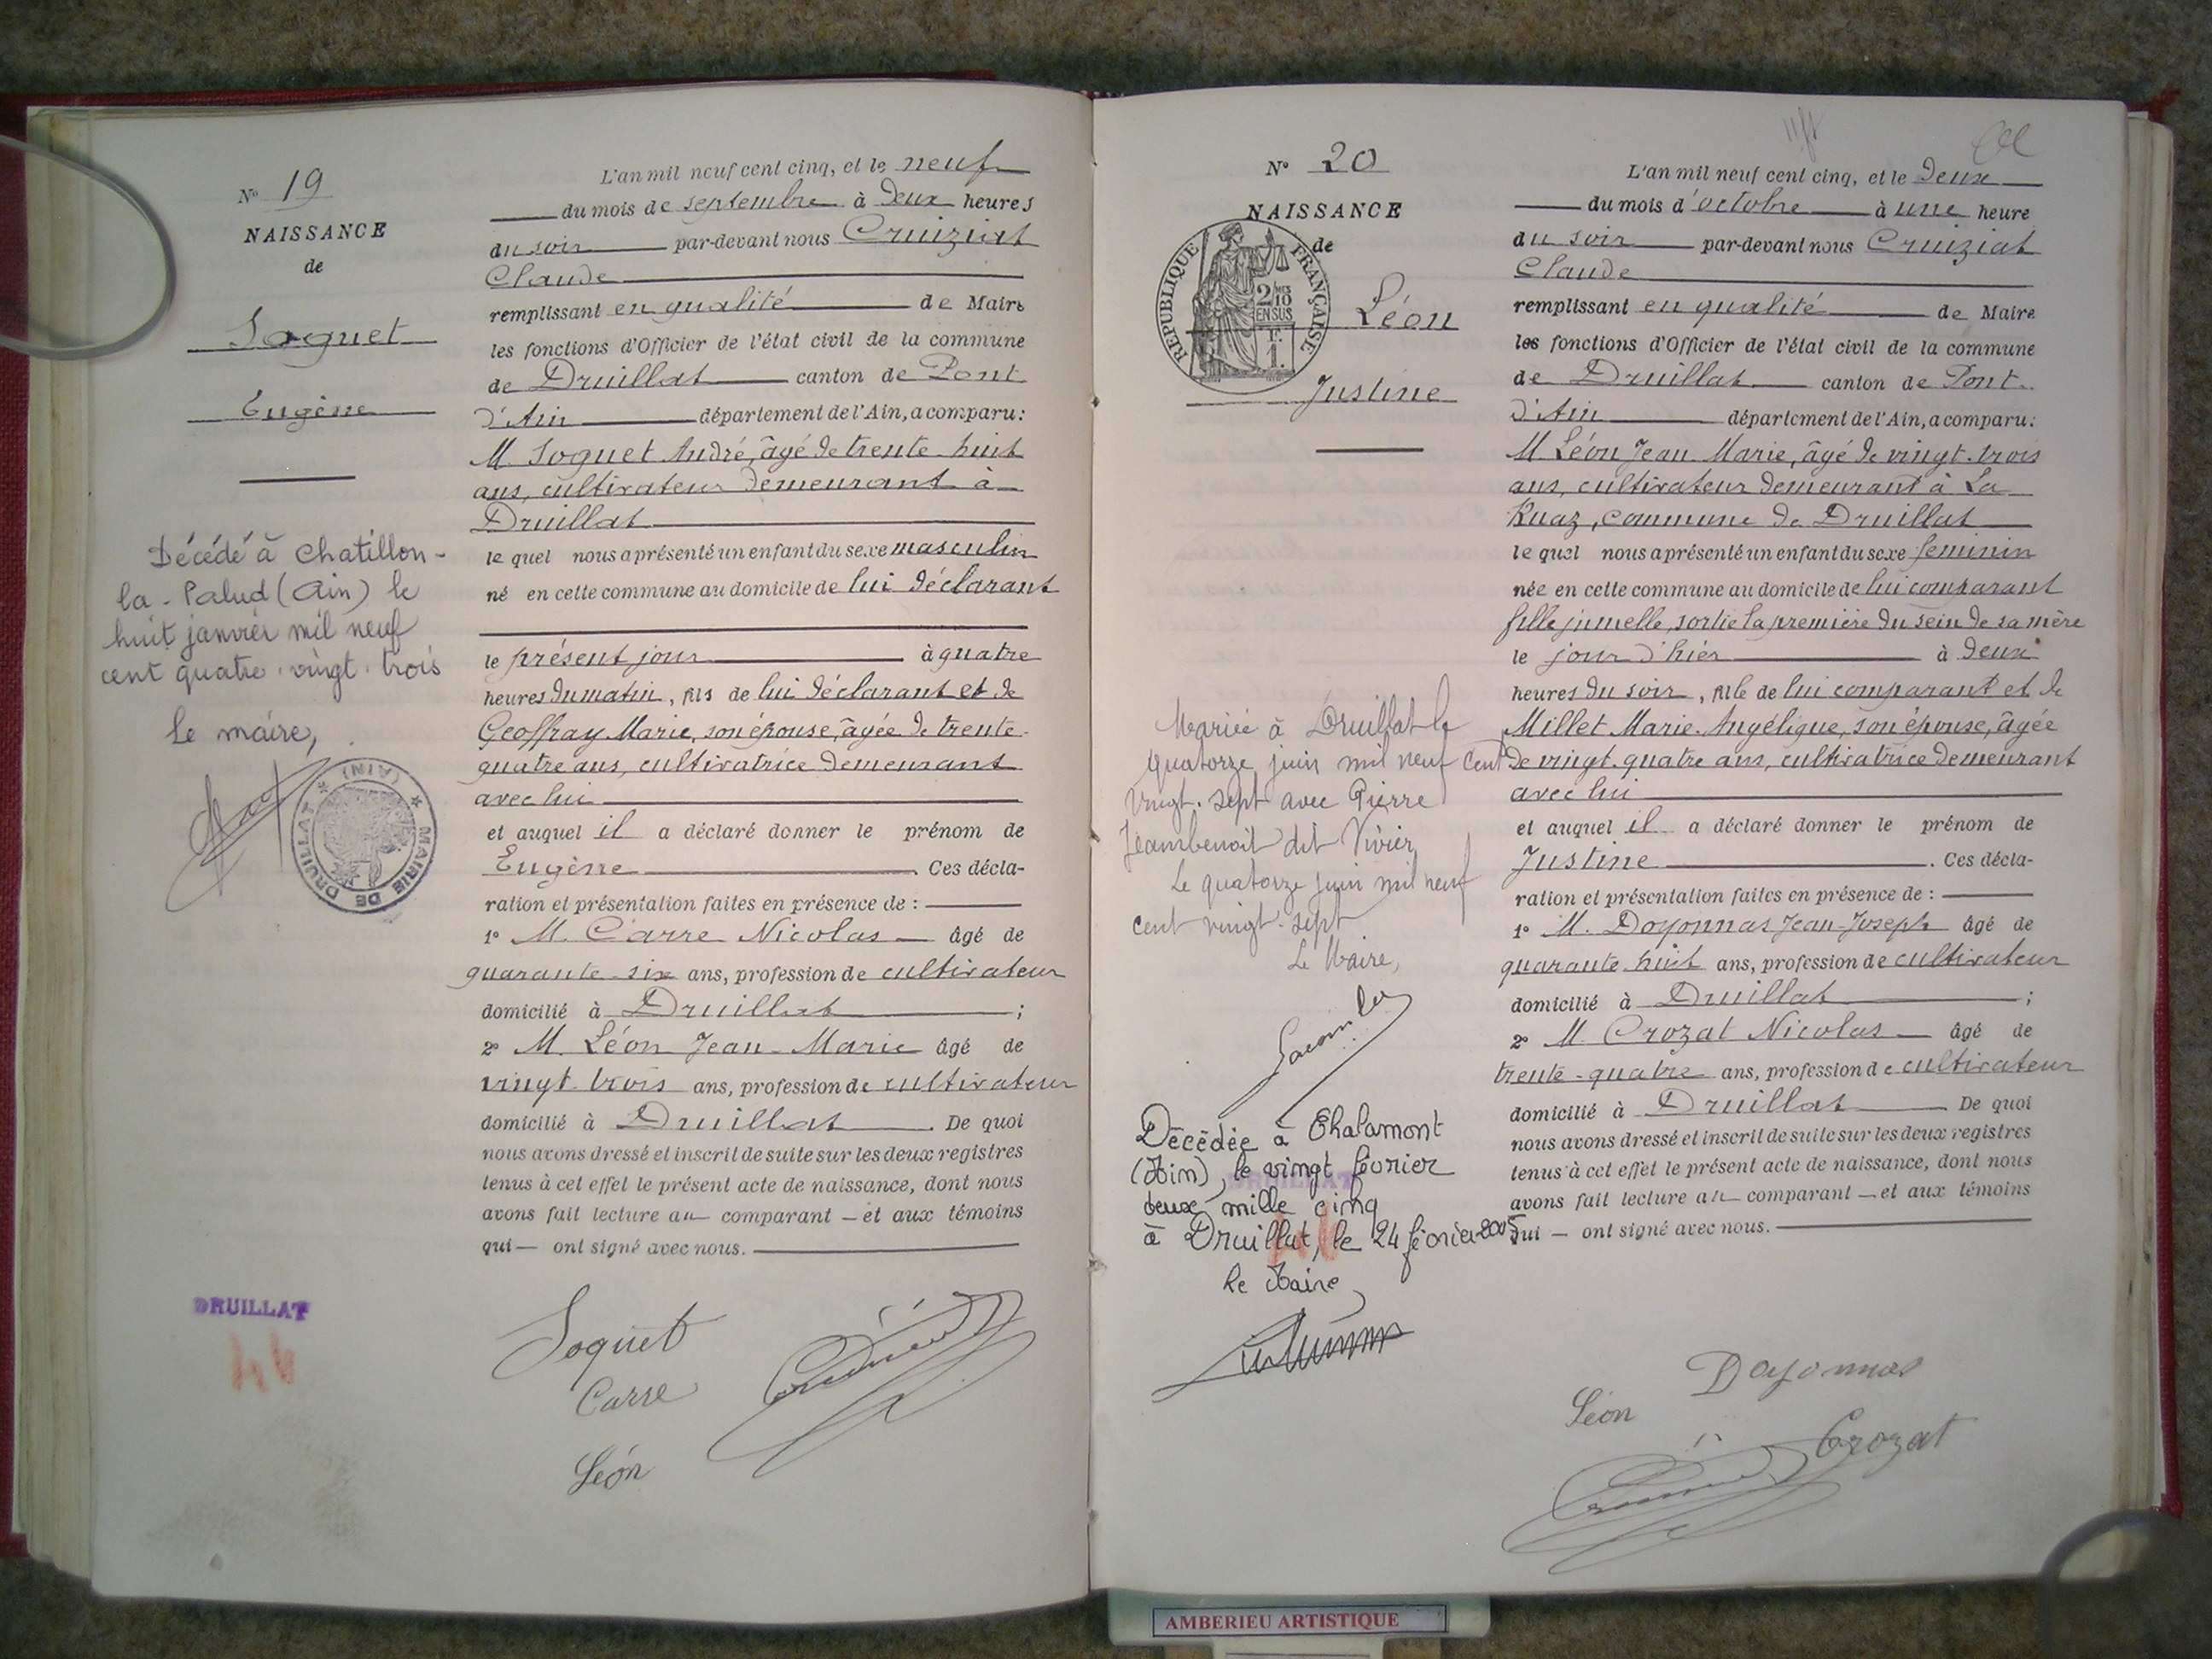 N° 19
NAISSANCE
de
Soquet
Eugène
Décédé à Chatillon-
la-Palud (Ain) le
huit janvier mil neuf
cent quatre-vingt-trois
Le maire,
MAIRIE DE DRUILLAT * (AIN) *
DRUILLAT
L'an mil neuf cent cinq, et le neuf
du mois de septembre à deux heures
du soir par-devant nous Cruiziat
Claude
remplissant en qualité de Maire
les fonctions d'Officier de l'état civil de la commune
de Druillat canton de Pont
d'Ain département de l'Ain, a comparu:
M. Soquet André, âgé de trente-huit
ans, cultivateur demeurant à
Druillat
le quel nous a présenté un enfant du sexe masculin
né en cette commune au domicile de lui déclarant
le présent jour à quatre
heures du matin, fils de lui déclarant et de
Geoffray Marie, son épouse, âgée de trente-
quatre ans, cultivatrice demeurant
avec lui
et auquel il a déclaré donner le prénom de
Eugène. Ces décla-
ration et présentation faites en présence de :
1° M. Carre Nicolas âgé de
quarante-six ans, profession de cultivateur
domicilié à Druillat ;
2° M. Léon Jean-Marie âgé de
vingt-trois ans, profession de cultivateur
domicilié à Druillat. De quoi
nous avons dressé et inscrit de suite sur les deux registres
tenus à cet effet le présent acte de naissance, dont nous
avons fait lecture au comparant et aux témoins
qui ont signé avec nous.
Soquet
Carre
Léon
N° 20
NAISSANCE
de
REPUBLIQUE FRANÇAISE
2/10 EN SUS
1 F.
Léon
Justine
Mariée à Druillat le
quatorze juin mil neuf cent
vingt-sept avec Pierre
Jeambenoit dit Vivier
Le quatorze juin mil neuf
cent vingt-sept
Le Maire,
Décédée à Chalamont
(Ain), le vingt février
deux mille cinq
à Druillat, le 24 février 2005
Le Maire
L'an mil neuf cent cinq, et le deux
du mois d'octobre à une heure
du soir par-devant nous Cruiziat
Claude
remplissant en qualité de Maire
les fonctions d'Officier de l'état civil de la commune
de Druillat canton de Pont-
d'Ain département de l'Ain, a comparu:
M. Léon Jean-Marie, âgé de vingt-trois
ans, cultivateur demeurant à La
Ruaz, commune de Druillat
le quel nous a présenté un enfant du sexe féminin
née en cette commune au domicile de lui comparant
fille jumelle, sortie la première du sein de sa mère
le jour d'hier à deux
heures du soir, fille de lui comparant et de
Millet Marie-Angélique, son épouse, âgée
de vingt-quatre ans, cultivatrice demeurant
avec lui
et auquel il a déclaré donner le prénom de
Justine. Ces décla-
ration et présentation faites en présence de :
1° M. Doyonnas Jean-Joseph âgé de
quarante-huit ans, profession de cultivateur
domicilié à Druillat ;
2° M. Crozat Nicolas âgé de
trente-quatre ans, profession de cultivateur
domicilié à Druillat De quoi
nous avons dressé et inscrit de suite sur les deux registres
tenus à cet effet le présent acte de naissance, dont nous
avons fait lecture au comparant et aux témoins
qui ont signé avec nous.
Doyonnas
Léon
Crozat
AMBERIEU ARTISTIQUE